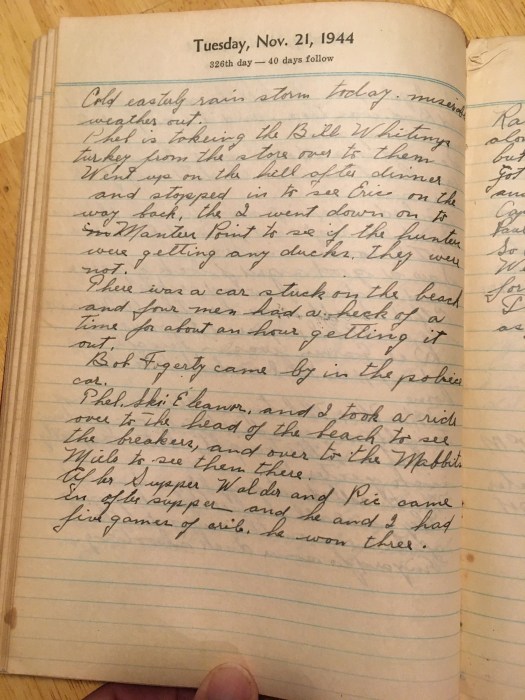 Tuesday, Nov. 21, 1944
326th day — 40 days follow
Cold easterly rain storm today. miserable
weather out.
Phel is takeing the Bill Whitings
turkey from the store over to them
Went up on the hill after dinner
and stopped in to see Eric on the
way back, the I went down on to
Manter Point to see if the hunters
were getting any ducks. they were
not.
There was a car stuck on the beach
and four men had a heck of a
time for about an hour getting it
out.
Bob Fogerty came by in the police
car.
Phel, Eleanor, and I took a ride
over to the head of the beach to see
the breakers, and over to the
to see them there.
After Supper and Pic came
in after supper and he and I had
five games of crib. he won three.
Ra
alon
but
got
and
So
W
for
I
as